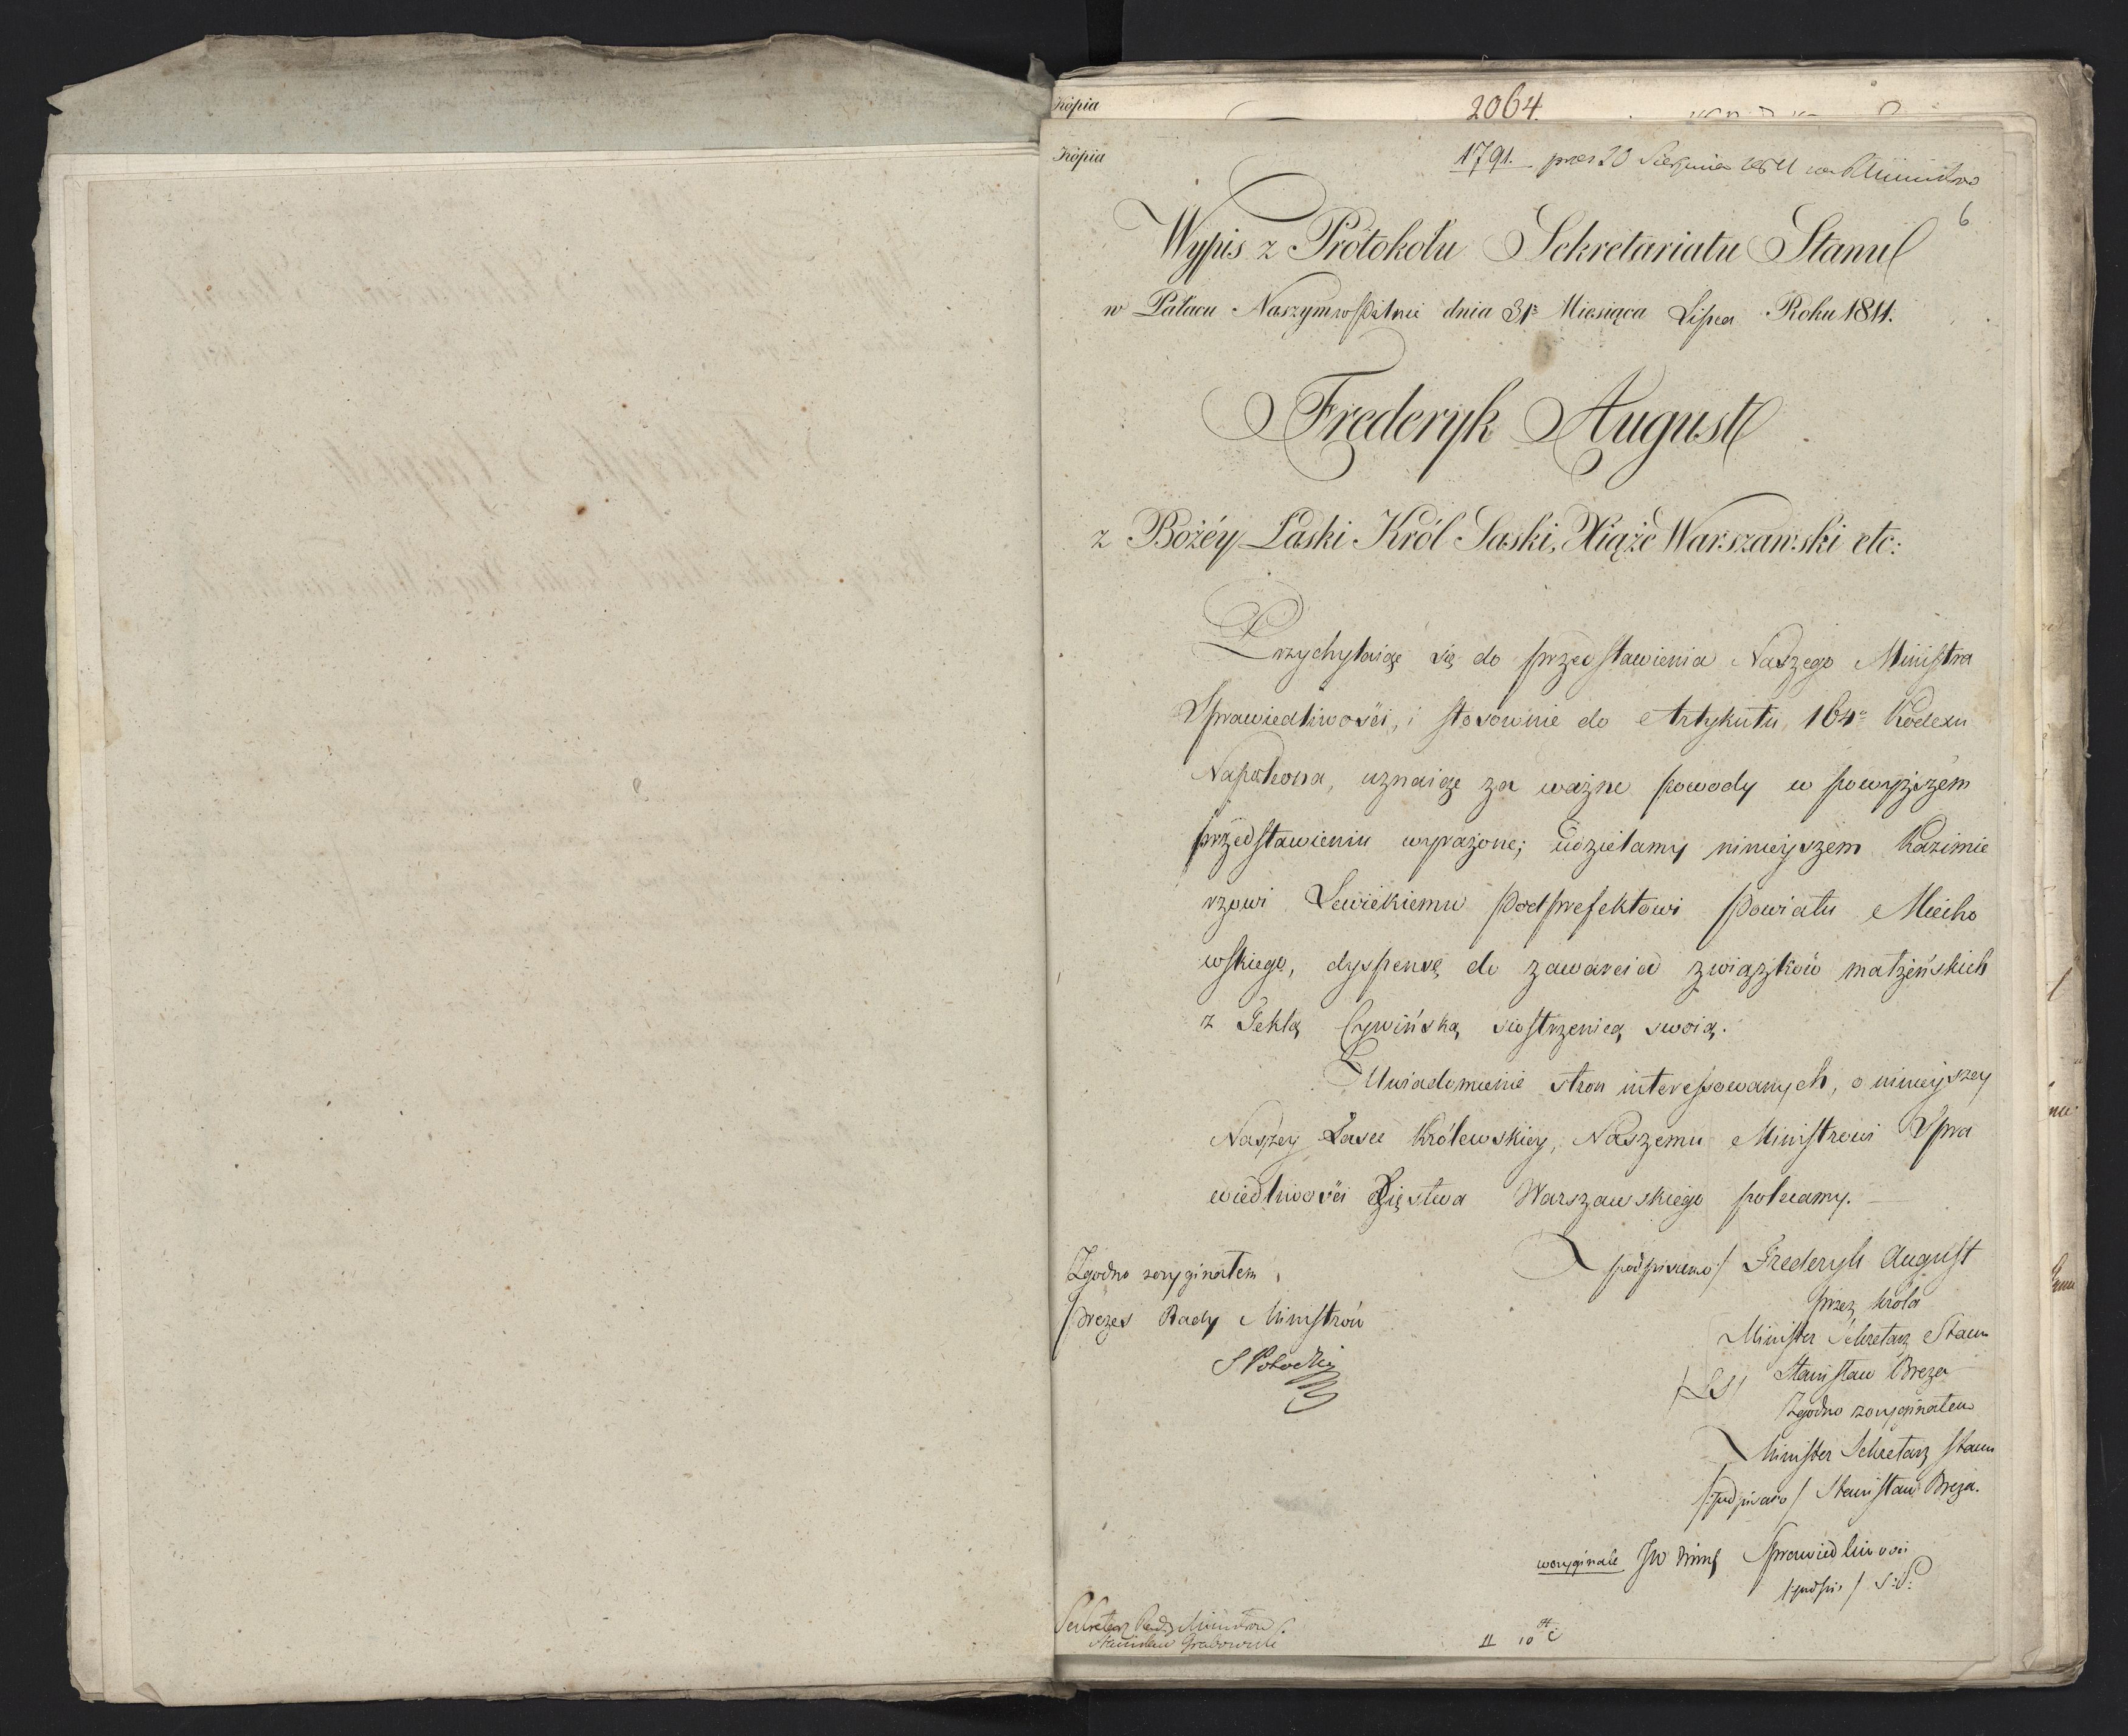 Kopia
2064.
Kopia
1791. prez 20 Sierpnia 1811
6
Wypis z Protokołu Sekretariatu Stanu
w Pałacu Naszym w Pilnie dnia 31º Miesiąca Lipca Roku 1811.
Frederyk August
z Bożéy Łaski Król Saski, Xiąże Warszawski etc:
Przychylaiąc się do przedstawienia Naszego Ministra
Sprawiedliwości, i stosownie do Artykułu 164º Kodexu
Napoleona, uznaiąc za ważne powody w powyższém
przedstawieniu wyrażone; udzielamy ninieyszem Kazimie
rzowi Lewickiemu Podprefektowi Powiatu Miecho
wskiego, dyspensę do zawarcia związków małżeńskich
z Teklą Cywińską siostrzenicą swoią.
Uwiadomienie stron interessowanych, o ninieyszey
Naszey Łasce Królewskiey, Naszemu Ministrowi Spra
wiedliwości Xięstwa Warszawskiego polecamy. —
podpisano / Frederyk August
przez Króla
Minister Sekretarz Stanu
/LS/ Stanisław Breza
Zgodno z oryginałem
Minister Sekretarz Stanu
/:podpisano/ Stanisław Breza.
w oryginale JW Minis Sprawiedliwości
/:podpis/ S:S:
Zgodno z oryginałem
Prezes Rady Ministrów
S Potocki
Sekretarz Rady Ministrów
Stanisław Grabowski